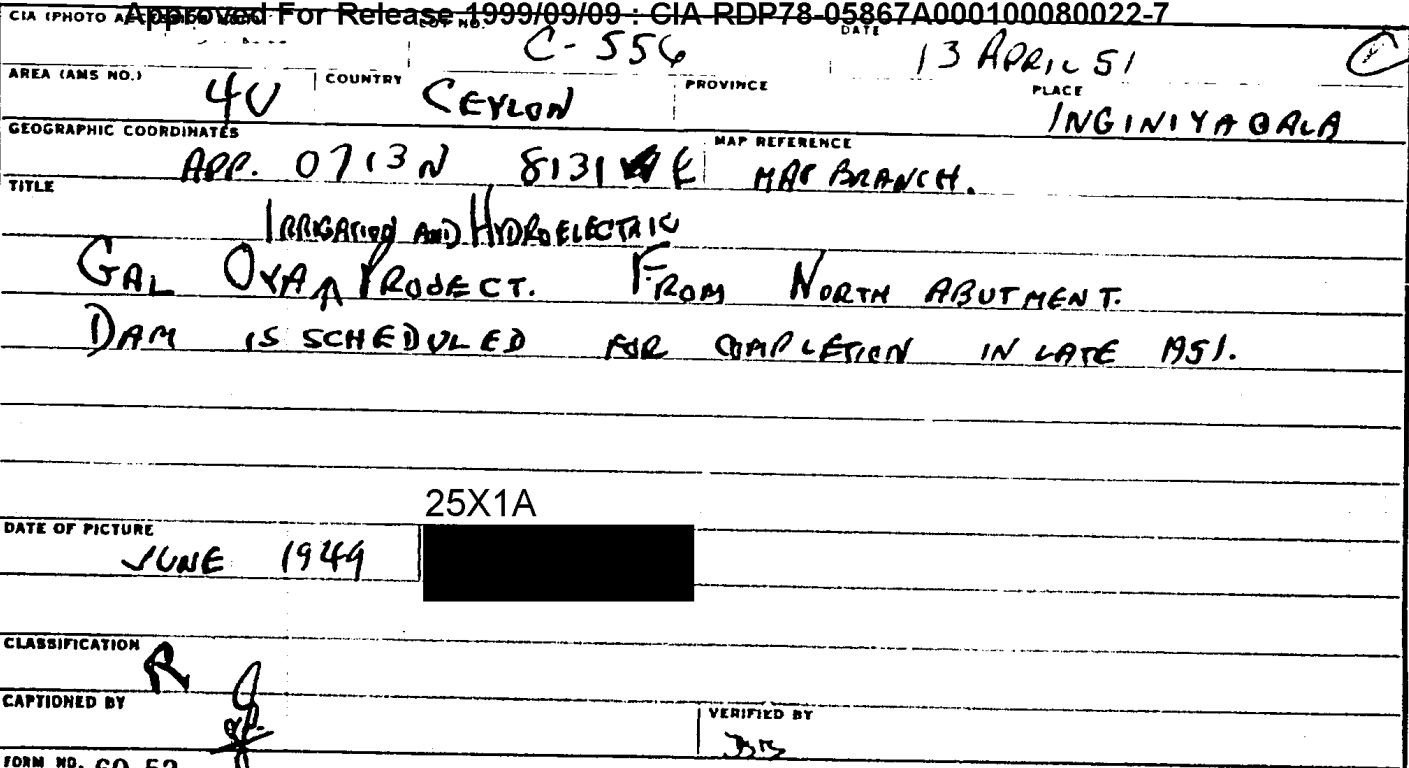 Approved For Release 1999/09/09 : CIA-RDP78-05867A000100080022-7
CIA (PHOTO NO. DATE
C-556 13 APRIL 51 C
AREA (AMS NO.) COUNTRY PROVINCE PLACE
4U CEYLON INGINIYAGALA
GEOGRAPHIC COORDINATES MAP REFERENCE
APP. 0713N 8131 E MAP BRANCH.
TITLE
IRRIGATION AND HYDROELECTRIC
GAL OYA PROJECT. FROM NORTH ABUTMENT.
DAM IS SCHEDULED FOR COMPLETION IN LATE 1951.
25X1A
DATE OF PICTURE
JUNE 1949
CLASSIFICATION
R
CAPTIONED BY VERIFIED BY
FORM NO. 60-52